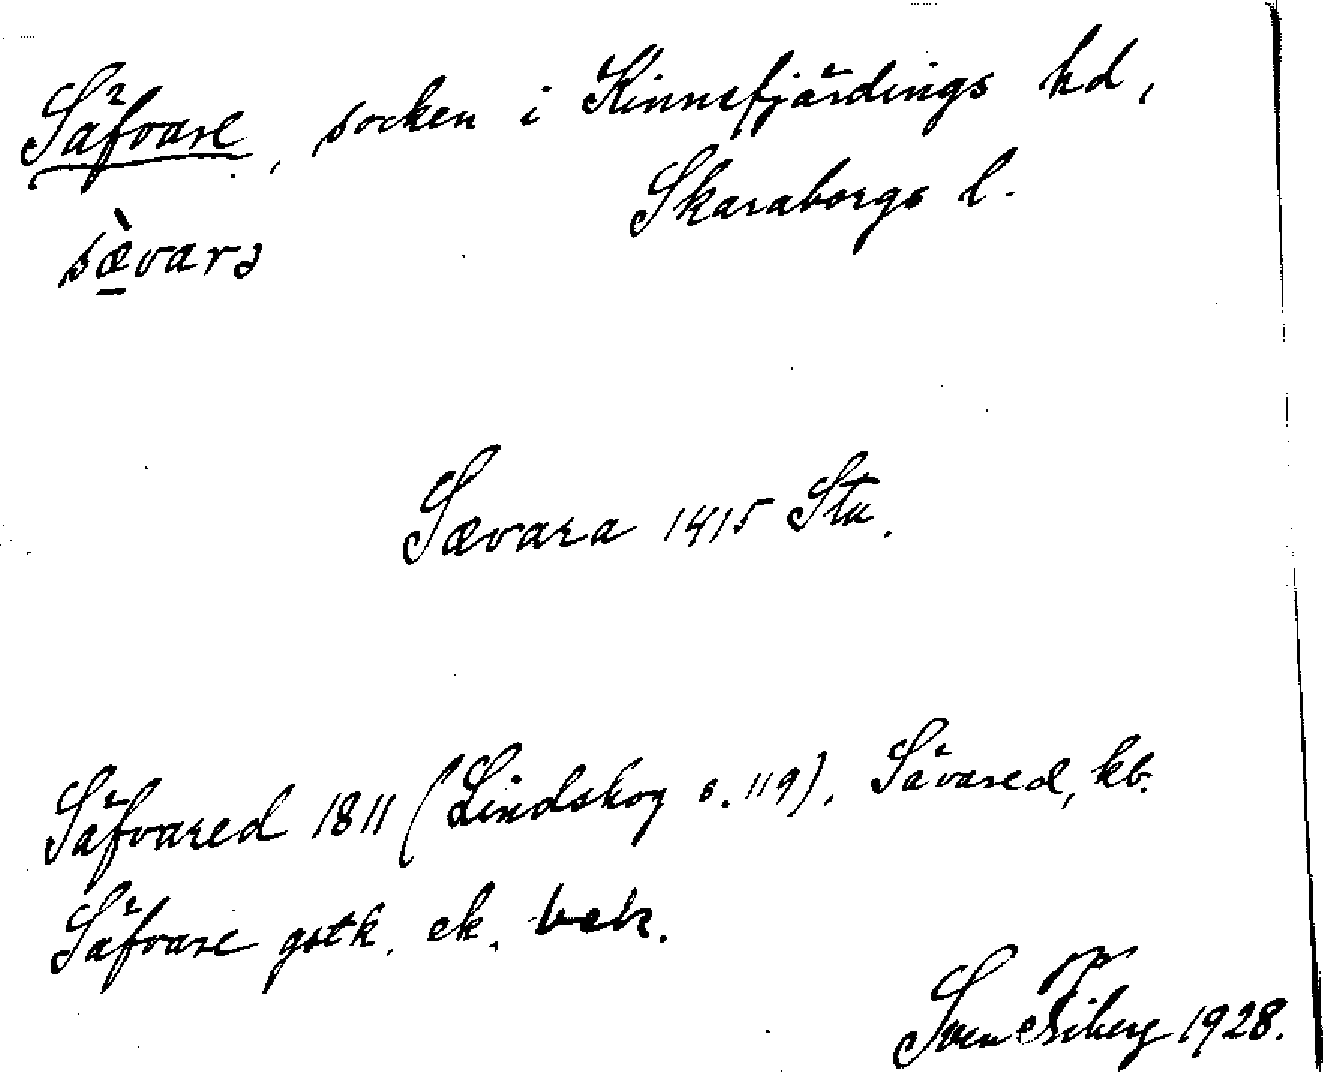 Säfvare, socken i Kinnefjärdings hd,
Skaraborgs l.
sæ̀varə
Sævara 1415 Sta.
Säfvared 1811 (Lindskog s. 119), Sävared, kb.
Säfvare gstk. ek. bek.
Sven Friberg 1928.